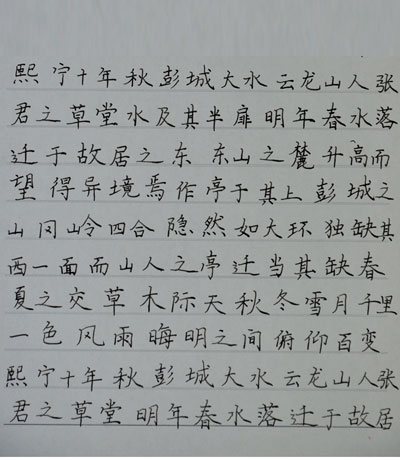 熙宁十年秋彭城大水云龙山人张
君之草堂水及其半扉明年春水落
迁于故居之东东山之麓升高而
望得异境焉作亭于其上彭城之
山冈岭四合隐然如大环独缺其
西一面而山人之亭迁当其缺春
夏之交草木际天秋冬雪月千里
一色风雨晦明之间俯仰百变
熙宁十年秋彭城大水云龙山人张
君之草堂明年春水落迁于故居